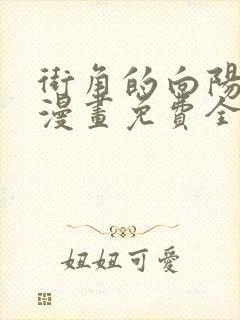 街角的向陽
漫畫免費全
妞妞可愛